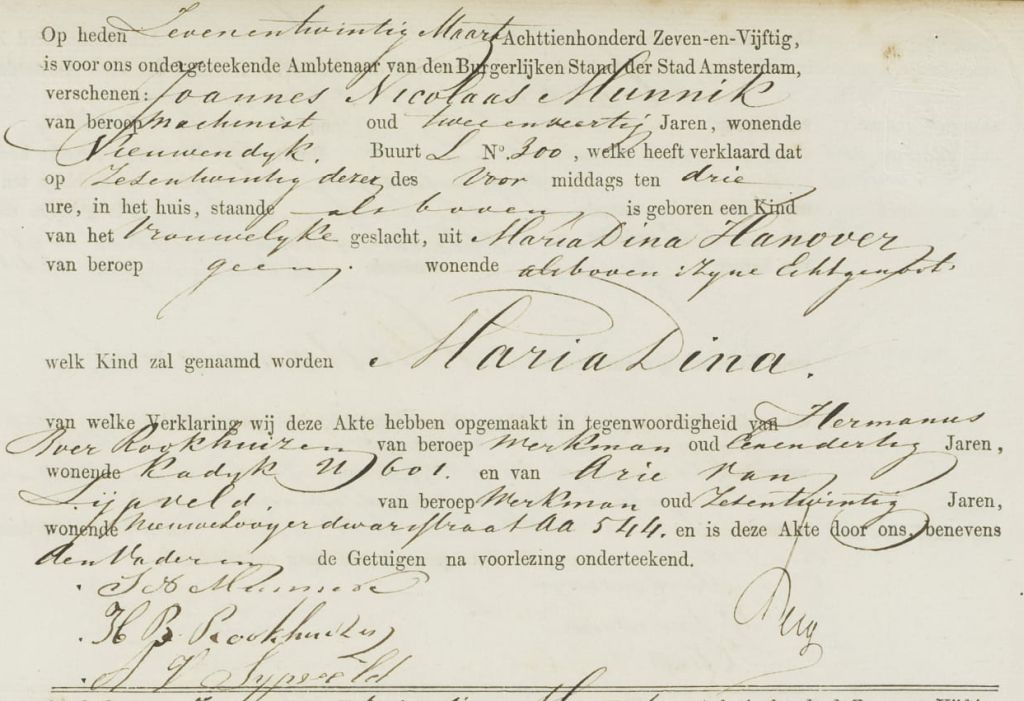 Op heden Zevenentwintig Maart Achttienhonderd Zeven-en-Vijftig,
is voor ons ondergeteekende Ambtenaar van den Burgerlijken Stand der Stad Amsterdam,
verschenen: Joannes Nicolaas Munnik
van beroep Machinist oud twee en veertig Jaren, wonende
Nieuwendyk. Buurt L No. 300, welke heeft verklaard dat
op Zesentwintig dezer des Voor middags ten drie
ure, in het huis, staande als boven is geboren een Kind
van het Vrouwelyke geslacht, uit Maria Dina Hanover
van beroep geen. wonende als boven Zyne Echtgenoot.
welk Kind zal genaamd worden Maria Dina.
van welke Verklaring wij deze Akte hebben opgemaakt in tegenwoordigheid van Hermanus
Rookhuizen van beroep Werkman oud Jaren,
wonende Kadyk 601. en van Arie van
van beroep Werkman oud Zesentwintig Jaren,
wonende Nieuwe Looyerdwarsstraat AA 544. en is deze Akte door ons, benevens
den Vader en de Getuigen na voorlezing onderteekend.
H B Rookhuizen